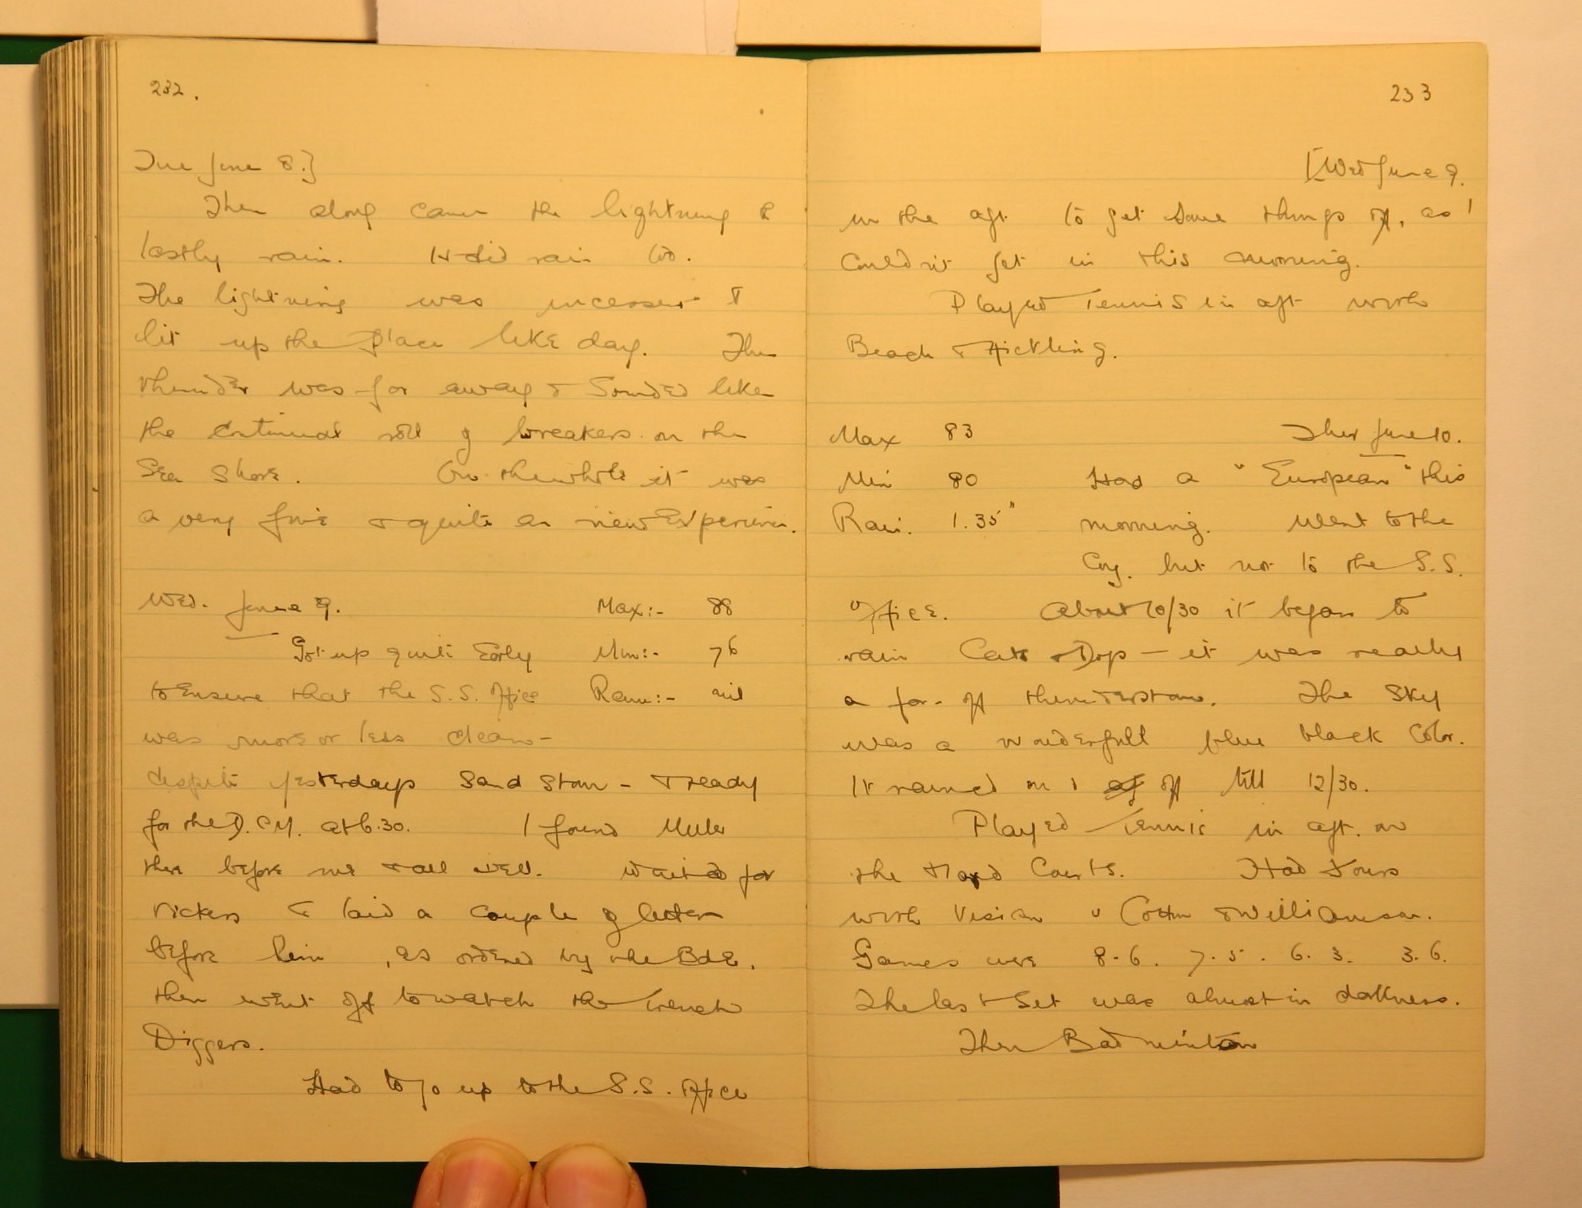 232.
Tue June 8.]
Then along came the lightning &
lastly rain. It did rain too.
The lightning was incessant &
lit up the place like day. The
thunder was far away & sounded like
the continual roll of breakers on the
Sea Shore. On the whole it was
a very fine & quite a new Experience.
Wed. June 9. Max:- 88
Got up quite Early Min:- 76
to Ensure that the S.S. Office Rain:- nil
was more or less clean -
despite yesterdays Sand Storm - & ready
for the D. at 6.30. I found
there before me & all well. Waited for
Vickers & laid a couple of letters
before him, as ordered by the Bde.
then went off to watch the Trench
Diggers.
Had to go up to the S.S. Office
233
[Wed June 9.
in the aft. to get some things off, as I
couldn't get in this morning.
Played Tennis in aft with
Beach & Hickling.
Max 83 Thur June 10.
Min 80 Had a "European" this
Rain. 1.35" morning. Went to the
Coy. but not to the S.S.
Office. About 10/30 it began to
rain Cats & Dogs - it was really
a far-off thunderstorm. The Sky
was a wonderfull blue black Color.
It rained on & off till 12/30.
Played Tennis in aft. on
the Hard Courts. Had fours
with Vivian v Cotton & Williamson.
Games were 8-6. 7.5. 6.3. 3.6.
The last Set was almost in darkness.
Then Badminton